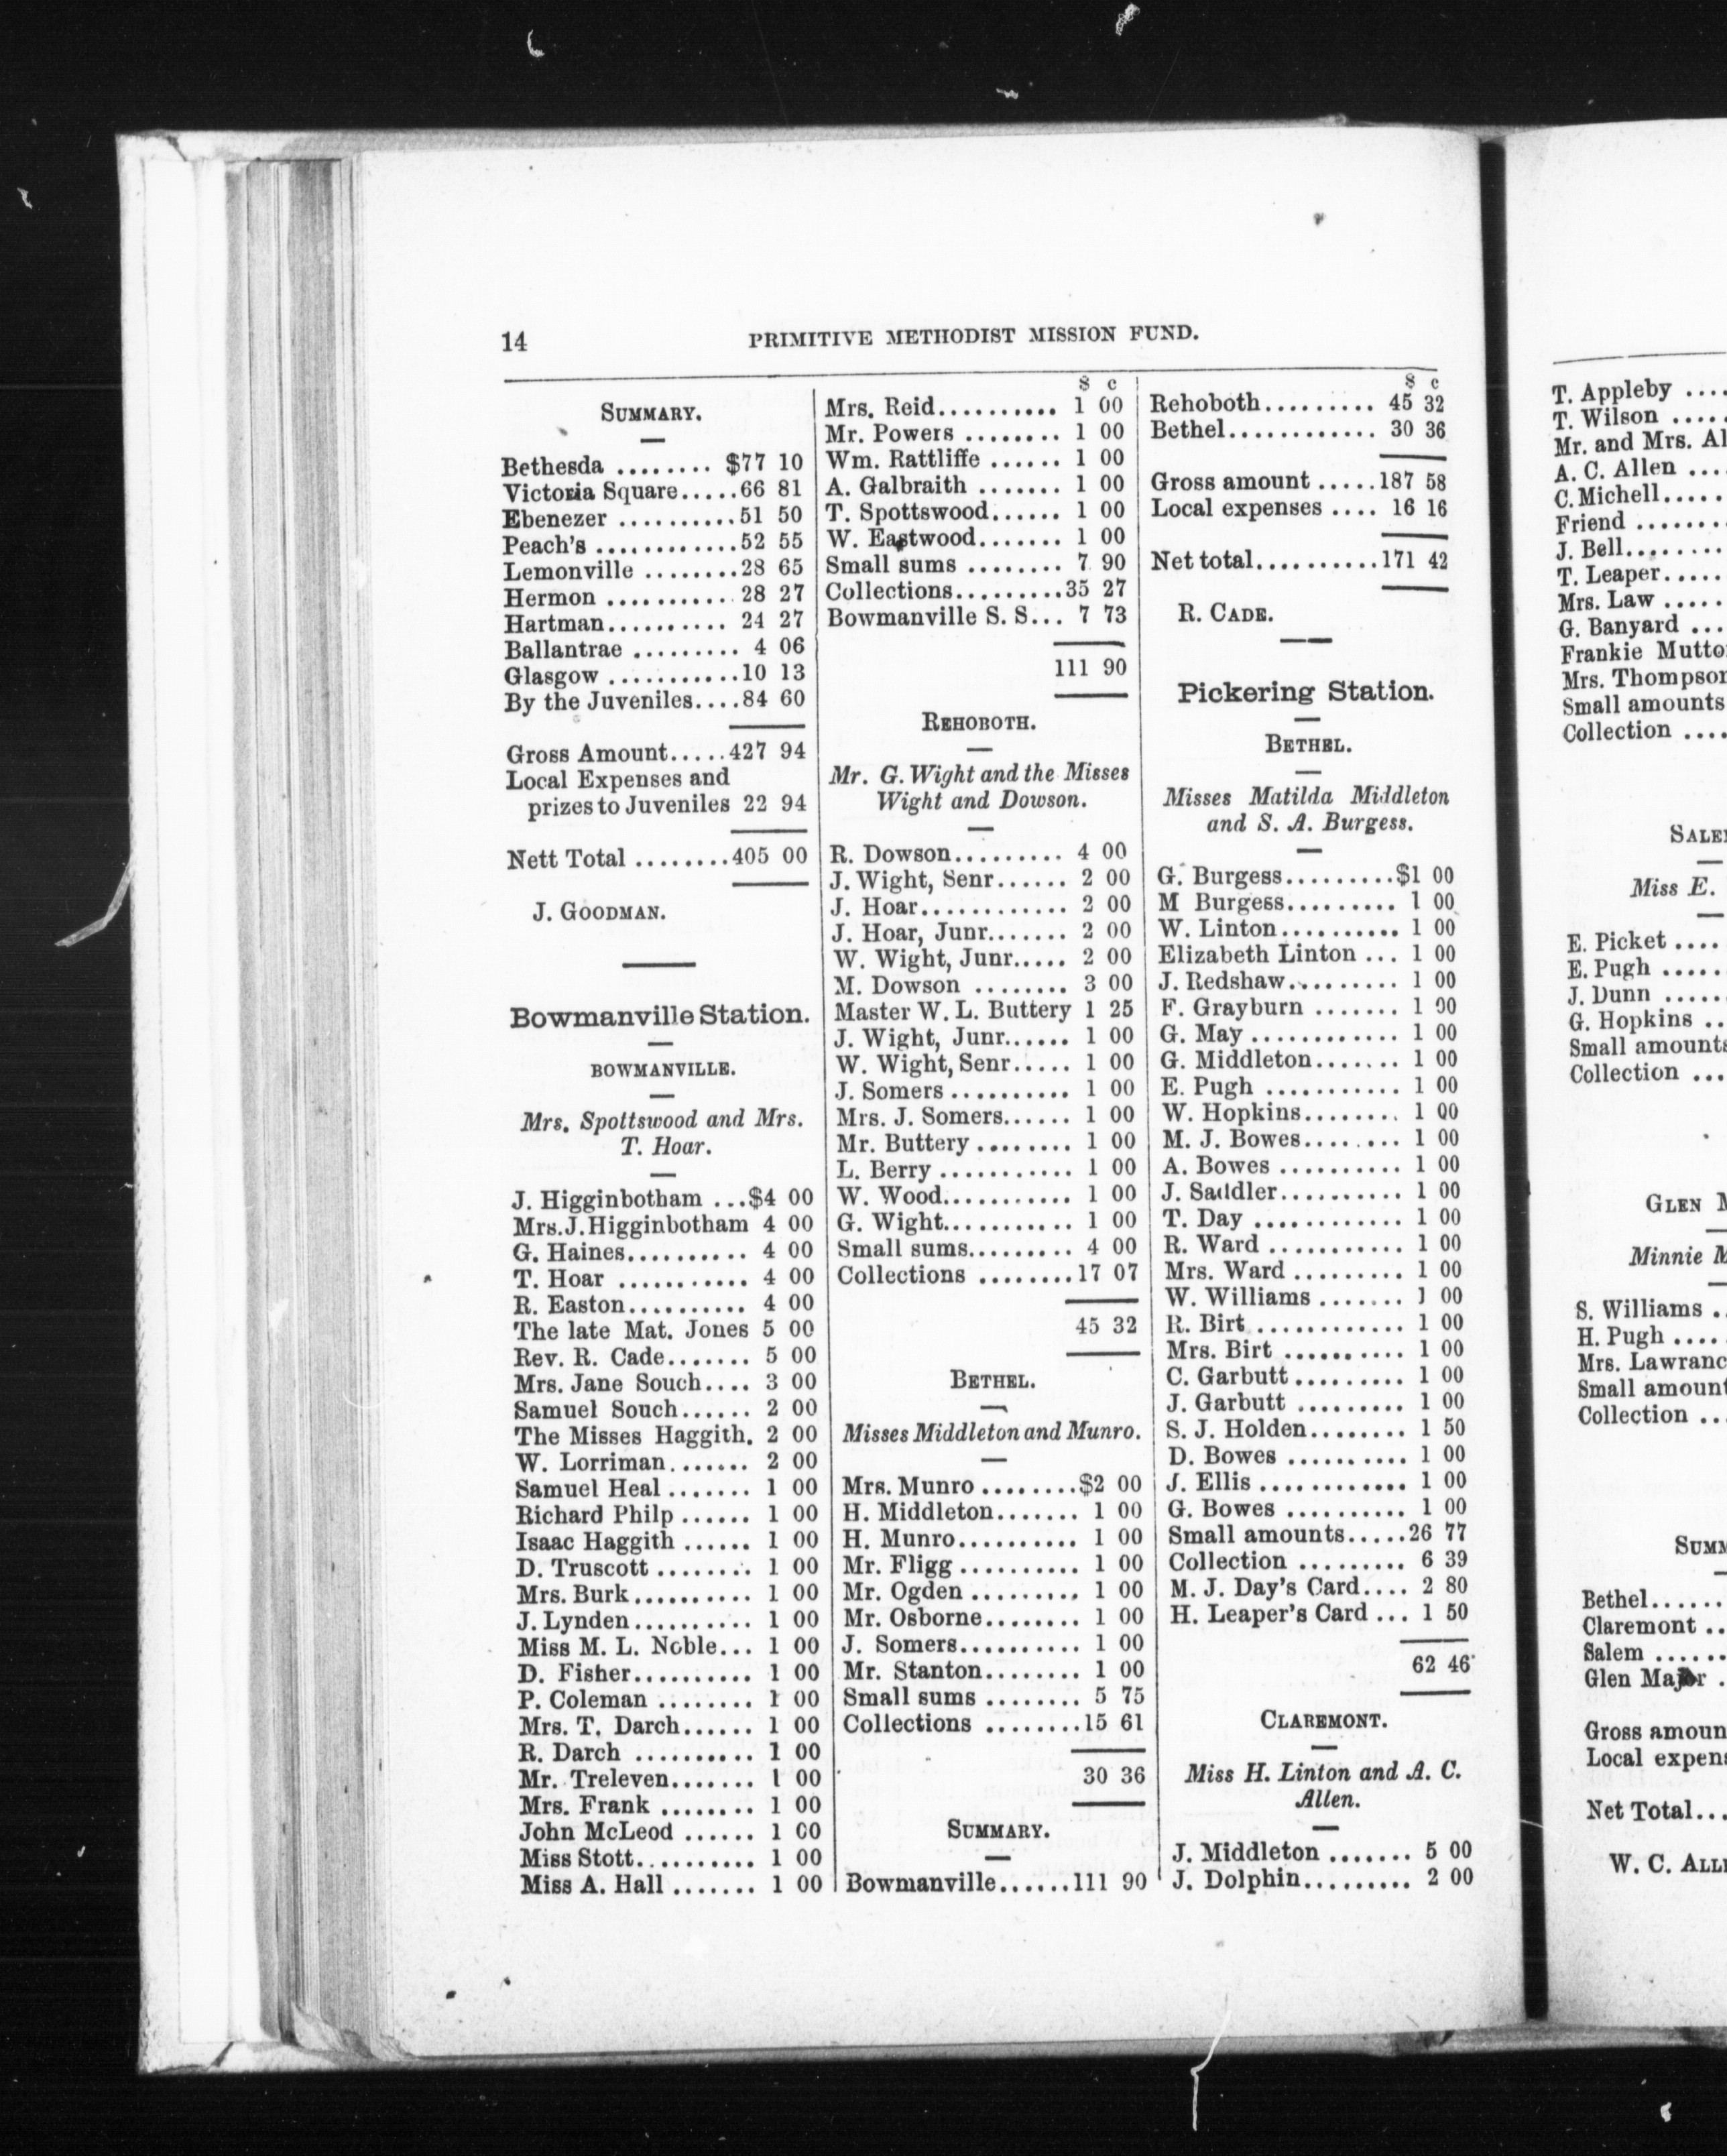 14
PRIMITIVE METHODIST MISSION FUND.
SUMMARY.
Bethesda ........ $77 10
Victoria Square.....66 81
Ebenezer ..........51 50
Peach's ............52 55
Lemonville ........28 65
Hermon ...........28 27
Hartman.......... 24 27
Ballantrae ......... 4 06
Glasgow ...........10 13
By the Juveniles....84 60
Gross Amount.....427 94
Local Expenses and
prizes to Juveniles 22 94
Nett Total ........405 00
J. GOODMAN.
Bowmanville Station.
BOWMANVILLE.
Mrs. Spottswood and Mrs.
T. Hoar.
J. Higginbotham ...$4 00
Mrs.J.Higginbotham 4 00
G. Haines.......... 4 00
T. Hoar ........... 4 00
R. Easton.......... 4 00
The late Mat. Jones 5 00
Rev. R. Cade....... 5 00
Mrs. Jane Souch.... 3 00
Samuel Souch...... 2 00
The Misses Haggith. 2 00
W. Lorriman....... 2 00
Samuel Heal ....... 1 00
Richard Philp ...... 1 00
Isaac Haggith ...... 1 00
D. Truscott ........ 1 00
Mrs. Burk.......... 1 00
J. Lynden.......... 1 00
Miss M. L. Noble... 1 00
D. Fisher.......... 1 00
P. Coleman ........ 1 00
Mrs. T. Darch...... 1 00
R. Darch .......... 1 00
Mr. Treleven....... 1 00
Mrs. Frank ........ 1 00
John McLeod ...... 1 00
Miss Stott.......... 1 00
Miss A. Hall ....... 1 00
$ c
Mrs. Reid.......... 1 00
Mr. Powers ........ 1 00
Wm. Rattliffe ...... 1 00
A. Galbraith ....... 1 00
T. Spottswood...... 1 00
W. Eastwood....... 1 00
Small sums ........ 7 90
Collections.........35 27
Bowmanville S. S... 7 73
111 90
REHOBOTH.
Mr. G. Wight and the Misses
Wight and Dowson.
R. Dowson......... 4 00
J. Wight, Senr...... 2 00
J. Hoar............ 2 00
J. Hoar, Junr....... 2 00
W. Wight, Junr..... 2 00
M. Dowson ........ 3 00
Master W. L. Buttery 1 25
J. Wight, Junr...... 1 00
W. Wight, Senr..... 1 00
J. Somers .......... 1 00
Mrs. J. Somers...... 1 00
Mr. Buttery ........ 1 00
L. Berry ........... 1 00
W. Wood........... 1 00
G. Wight........... 1 00
Small sums......... 4 00
Collections ........17 07
45 32
BETHEL.
Misses Middleton and Munro.
Mrs. Munro ........$2 00
H. Middleton....... 1 00
H. Munro.......... 1 00
Mr. Fligg .......... 1 00
Mr. Ogden ......... 1 00
Mr. Osborne........ 1 00
J. Somers.......... 1 00
Mr. Stanton........ 1 00
Small sums ........ 5 75
Collections ........15 61
30 36
SUMMARY.
Bowmanville......111 90
$ c
Rehoboth......... 45 32
Bethel............ 30 36
Gross amount .....187 58
Local expenses .... 16 16
Net total..........171 42
R. CADE.
Pickering Station.
BETHEL.
Misses Matilda Middleton
and S. A. Burgess.
G. Burgess.........$1 00
M Burgess......... 1 00
W. Linton.......... 1 00
Elizabeth Linton ... 1 00
J. Redshaw......... 1 00
F. Grayburn ....... 1 00
G. May ............ 1 00
G. Middleton....... 1 00
E. Pugh ........... 1 00
W. Hopkins........ 1 00
M. J. Bowes........ 1 00
A. Bowes .......... 1 00
J. Saddler.......... 1 00
T. Day ............ 1 00
R. Ward ........... 1 00
Mrs. Ward ......... 1 00
W. Williams ....... 1 00
R. Birt ............ 1 00
Mrs. Birt .......... 1 00
C. Garbutt ......... 1 00
J. Garbutt ......... 1 00
S. J. Holden........ 1 50
D. Bowes .......... 1 00
J. Ellis ............ 1 00
G. Bowes .......... 1 00
Small amounts.....26 77
Collection ......... 6 39
M. J. Day's Card.... 2 80
H. Leaper's Card ... 1 50
62 46
CLAREMONT.
Miss H. Linton and A. C.
Allen.
J. Middleton ....... 5 00
J. Dolphin......... 2 00
T. Appleby ....
T. Wilson .....
Mr. and Mrs. Al
A. C. Allen ....
C. Michell.....
Friend .......
J. Bell........
T. Leaper.....
Mrs. Law .....
G. Banyard ...
Frankie Mutto
Mrs. Thompson
Small amounts
Collection ....
SALE
Miss E.
E. Picket ....
E. Pugh .....
J. Dunn .....
G. Hopkins ..
Small amounts
Collection ...
GLEN M
Minnie M
S. Williams .
H. Pugh ....
Mrs. Lawranc
Small amount
Collection ..
SUMM
Bethel......
Claremont ..
Salem ......
Glen Major .
Gross amoun
Local expens
Net Total...
W. C. ALL